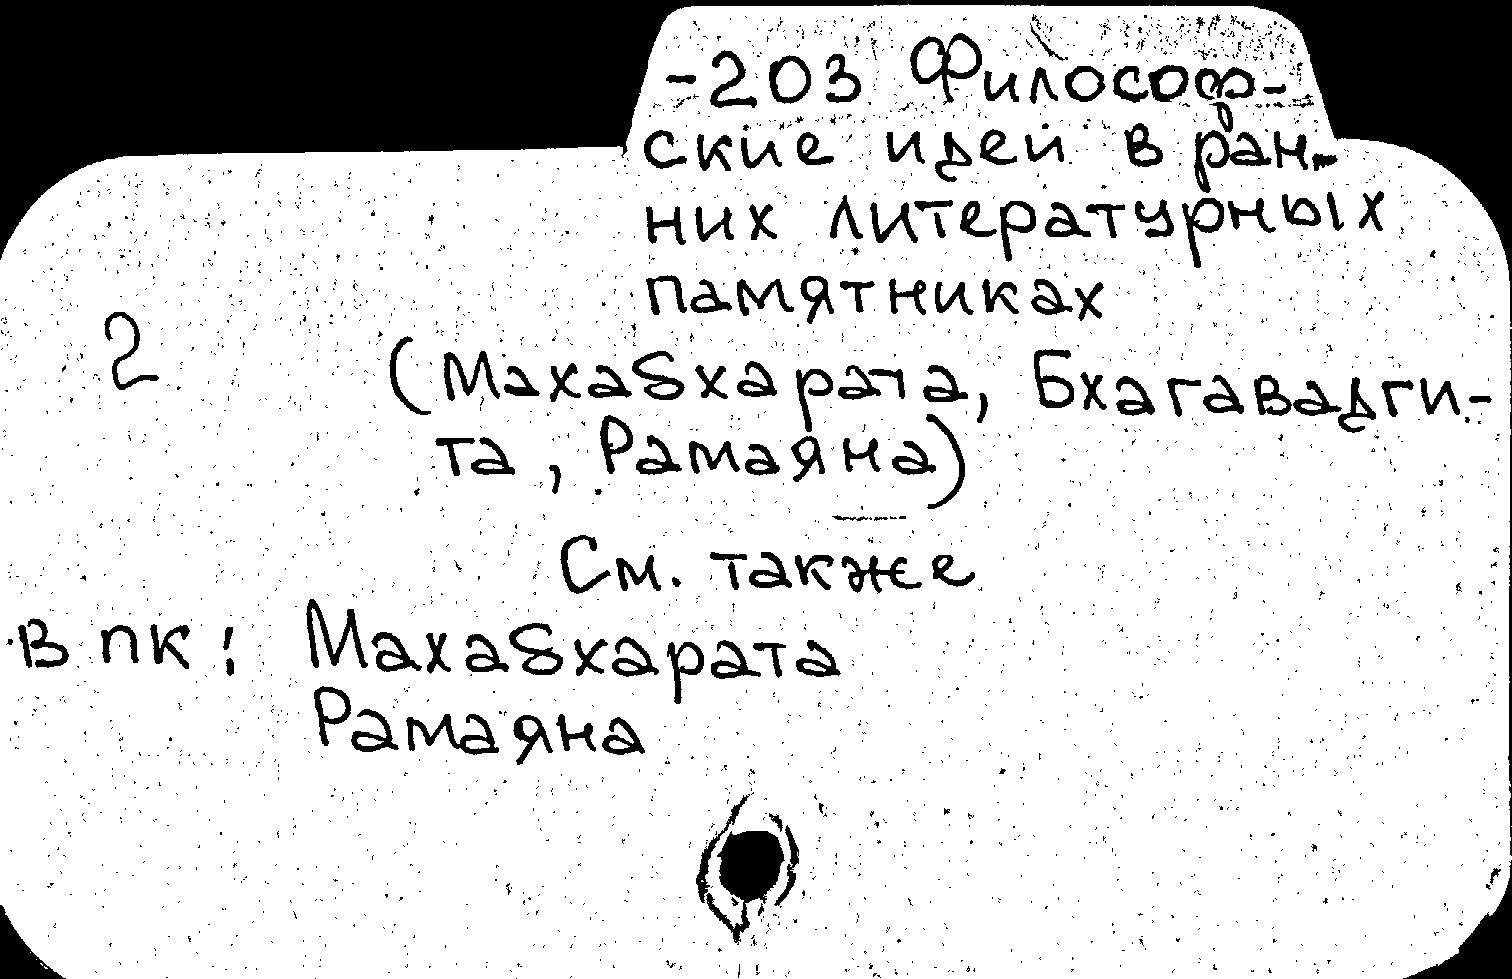 -203 Философ-
ские идеи в ран-
них литературных
памятниках
2
(Махабхарата, Бхагавадги-
та, Рамаяна)
См. также
в ПК: Махабхарата
Рамаяна